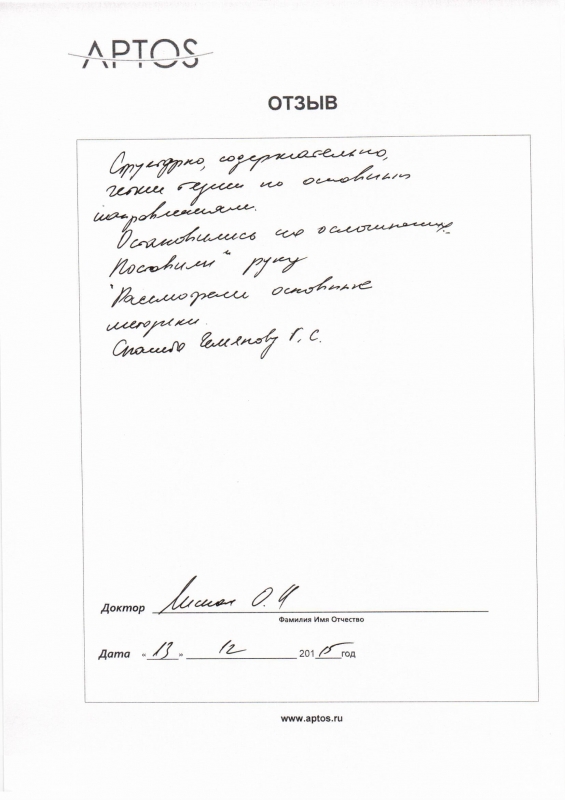 APTOS
ОТЗЫВ
Структурно, содержательно,
четкие тезисы по основным
направлениям.
Остановились на осложнениях.
"Поставили" руку
Рассмотрели основные
методики.
Спасибо Чемянову Г. С.
Доктор О. И
Фамилия Имя Отчество
Дата «13» 12 2015 год
www.aptos.ru